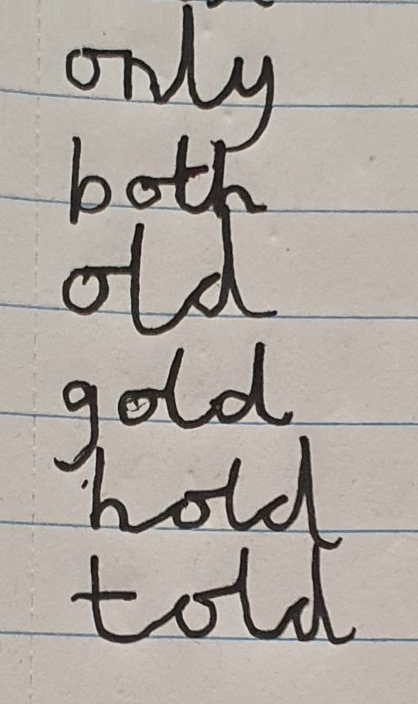 only
both
old
gold
hold
told